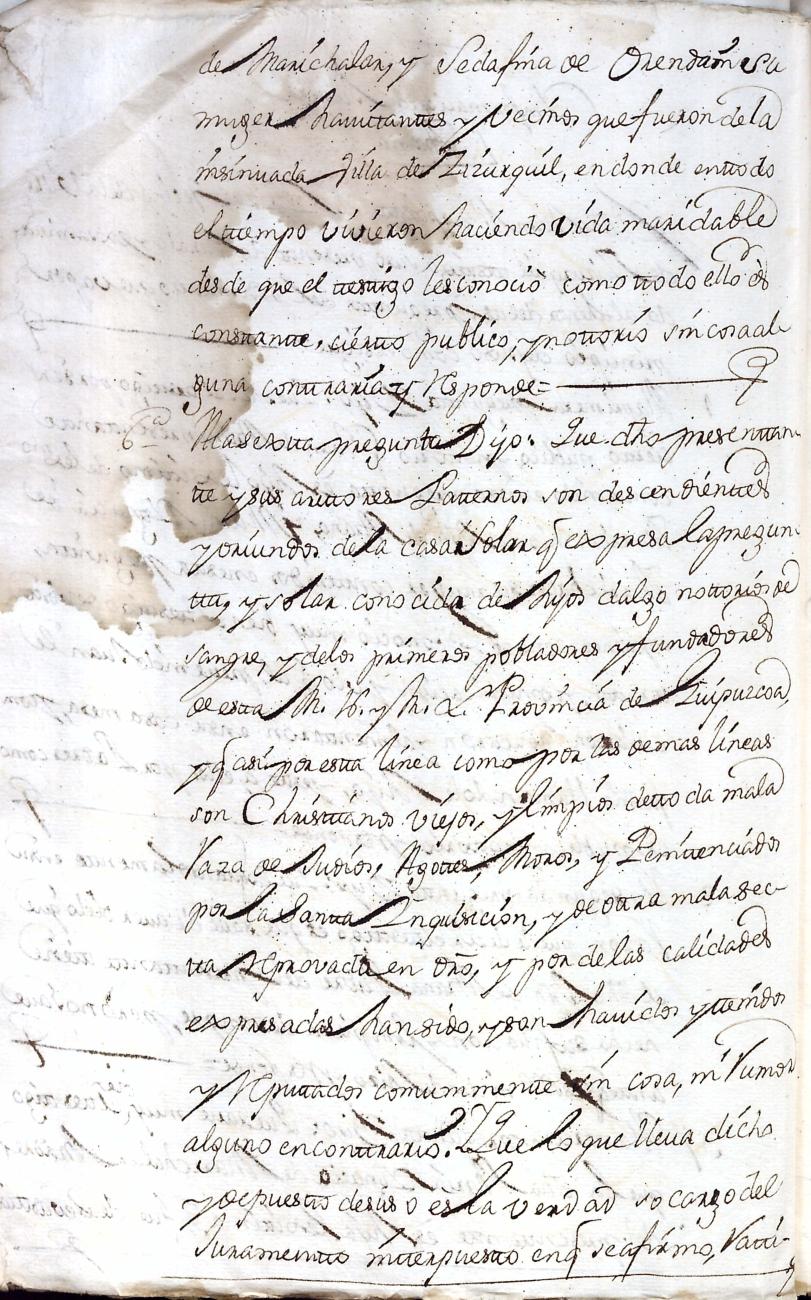 de Marichalar, y Sedafina de Orendain su
muger havittanttes y Vecinos que fueron de la
insinuada Villa de Zizurquil, en donde en ttodo
el ttiempo vivieron haciendo vida maridable
desde que el testtigo les conoció como ttodo ello és
consttantte, ciertto publico, y nottorio sin cosa al-
guna conttraria y responde=
6ª Ala sextta preguntta Dijo: Que dho presenttan-
tte y sus auttores Patternos son descendienttes
y oriundos de la casa Solar q expresa la pregun-
tta, y solar conocida de hijos dalgo nottorios de
sangre, y delos primeros pobladores y fundadores
de estta M. N. y M. L. Provincia de Guipuzcoa,
y q así por estta linea como por las demas lineas
son Christtianos viejos, y limpios de ttoda mala
Raza de Judios, Agottes, Moros, y Penittenciados
por la Santta Inquisicion, y de ottra mala sec-
tta reprovada en dro, y por de las calidades
expresadas han sido, y son havidos y ttenidos
y reputtados comunmentte sin cosa, ni Rumor
alguno en conttrario. Y que lo que lleva dicho
y depuestto de suso es la verdad so cargo del
Juramentto intterpuestto en q se afirmó, Ratti-